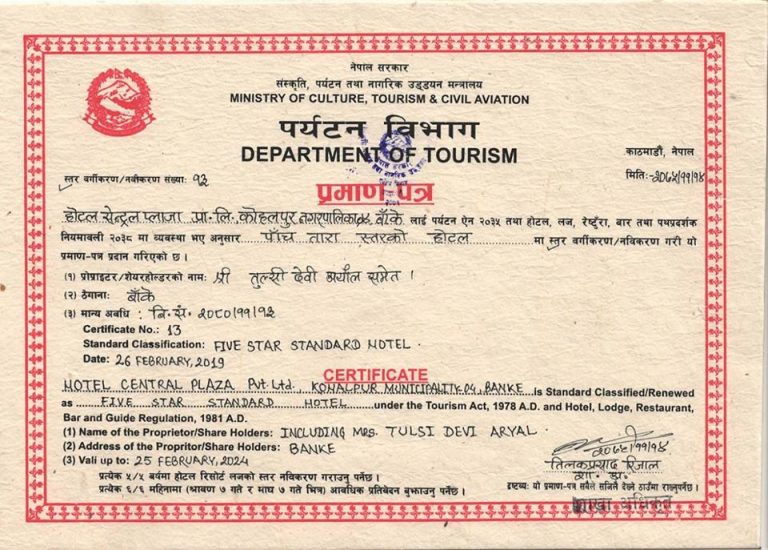 नेपाल सरकार
संस्कृति, पर्यटन तथा नागरिक उड्डयन मन्त्रालय
MINISTRY OF CULTURE, TOURISM & CIVIL AVIATION
पर्यटन विभाग
DEPARTMENT OF TOURISM
काठमाडौं, नेपाल
स्तर वर्गीकरण/नवीकरण संख्याः १३
मितिः २०७५/११/१४
प्रमाण पत्र
होटल सेन्ट्रल प्लाजा प्रा. लि. कोहलपुर नगरपालिका बाँके लाई पर्यटन ऐन २०३५ तथा होटल, लज, रेष्टुँरा, बार तथा पथप्रदर्शक
नियमावली २०३८ मा व्यवस्था भए अनुसार पाँच तारा स्तरको होटल मा स्तर वर्गीकरण/नविकरण गरी यो
प्रमाण-पत्र प्रदान गरिएको छ ।
(१) प्रोप्राइटर/शेयरहोल्डरको नामः श्री तुल्सी देवी अर्याल समेत ।
(२) ठेगानाः बाँके
(३) मान्य अवधि : वि. सं. २०८०/११/१३
Certificate No.: 13
Standard Classification: FIVE STAR STANDARD HOTEL.
Date: 26 FEBRUARY, 2019
CERTIFICATE
HOTEL CENTRAL PLAZA Pvt. Ltd., KOHALPUR MUNICIPALITY, BANKE is Standard Classified/Renewed
as FIVE STAR STANDARD HOTEL under the Tourism Act, 1978 A.D. and Hotel, Lodge, Restaurant,
Bar and Guide Regulation, 1981 A.D.
(1) Name of the Proprietor/Share Holders: INCLUDING MRS. TULSI DEVI ARYAL.
(2) Address of the Propritor/Share Holders: BANKE
(3) Vali up to: 25 FEBRUARY, 2024
२०७५/११/१४
तिलकप्रसाद रिजाल
शा. अ.
प्रत्येक ५/५ बर्षमा होटल रिसोर्ट लजको स्तर नविकरण गराउनु पर्नेछ ।
प्रत्येक ६/६ महिनामा (श्रावण ७ गते र माघ ७ गते भित्र) आवधिक प्रतिबेदन बुझाउनु पर्नेछ ।
द्रष्टव्यः यो प्रमाण-पत्र सबैले सजिलै देख्ने ठाउँमा राख्नुपर्नेछ ।
शाखा अधिकृत